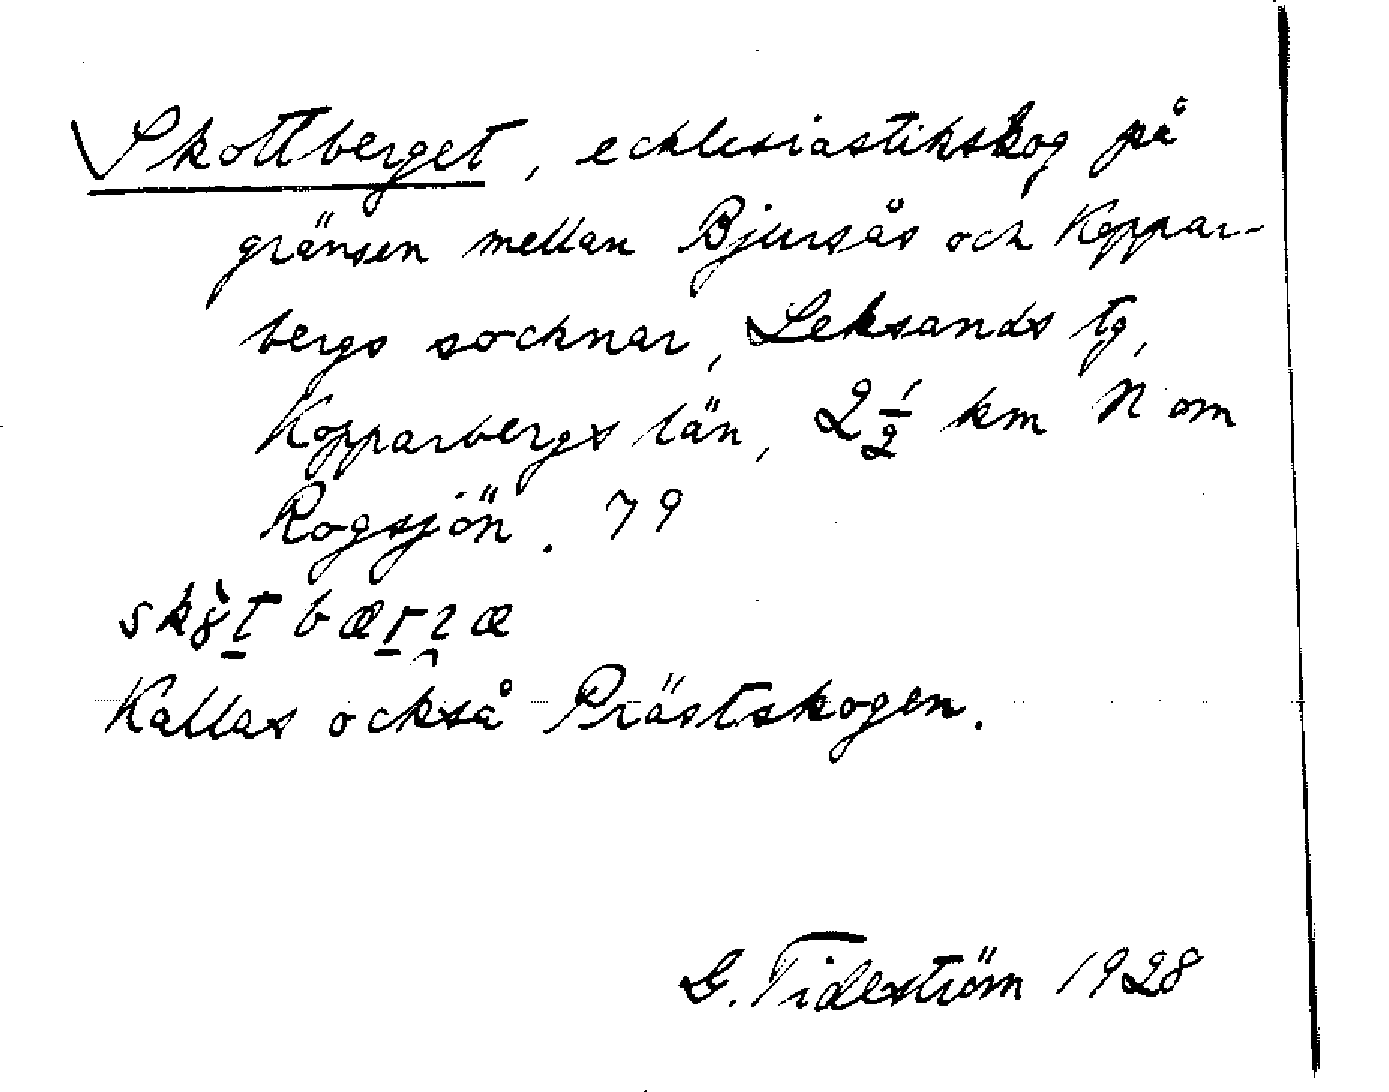 Skottberget, ecklesiastikskog på
gränsen mellan Bjursås och Koppar-
bergs socknar, Leksands tg,
Kopparbergs län, 2 1/2 km N om
Rogsjön. 79
Kallas också Prästskogen.
G. Tideström 1928